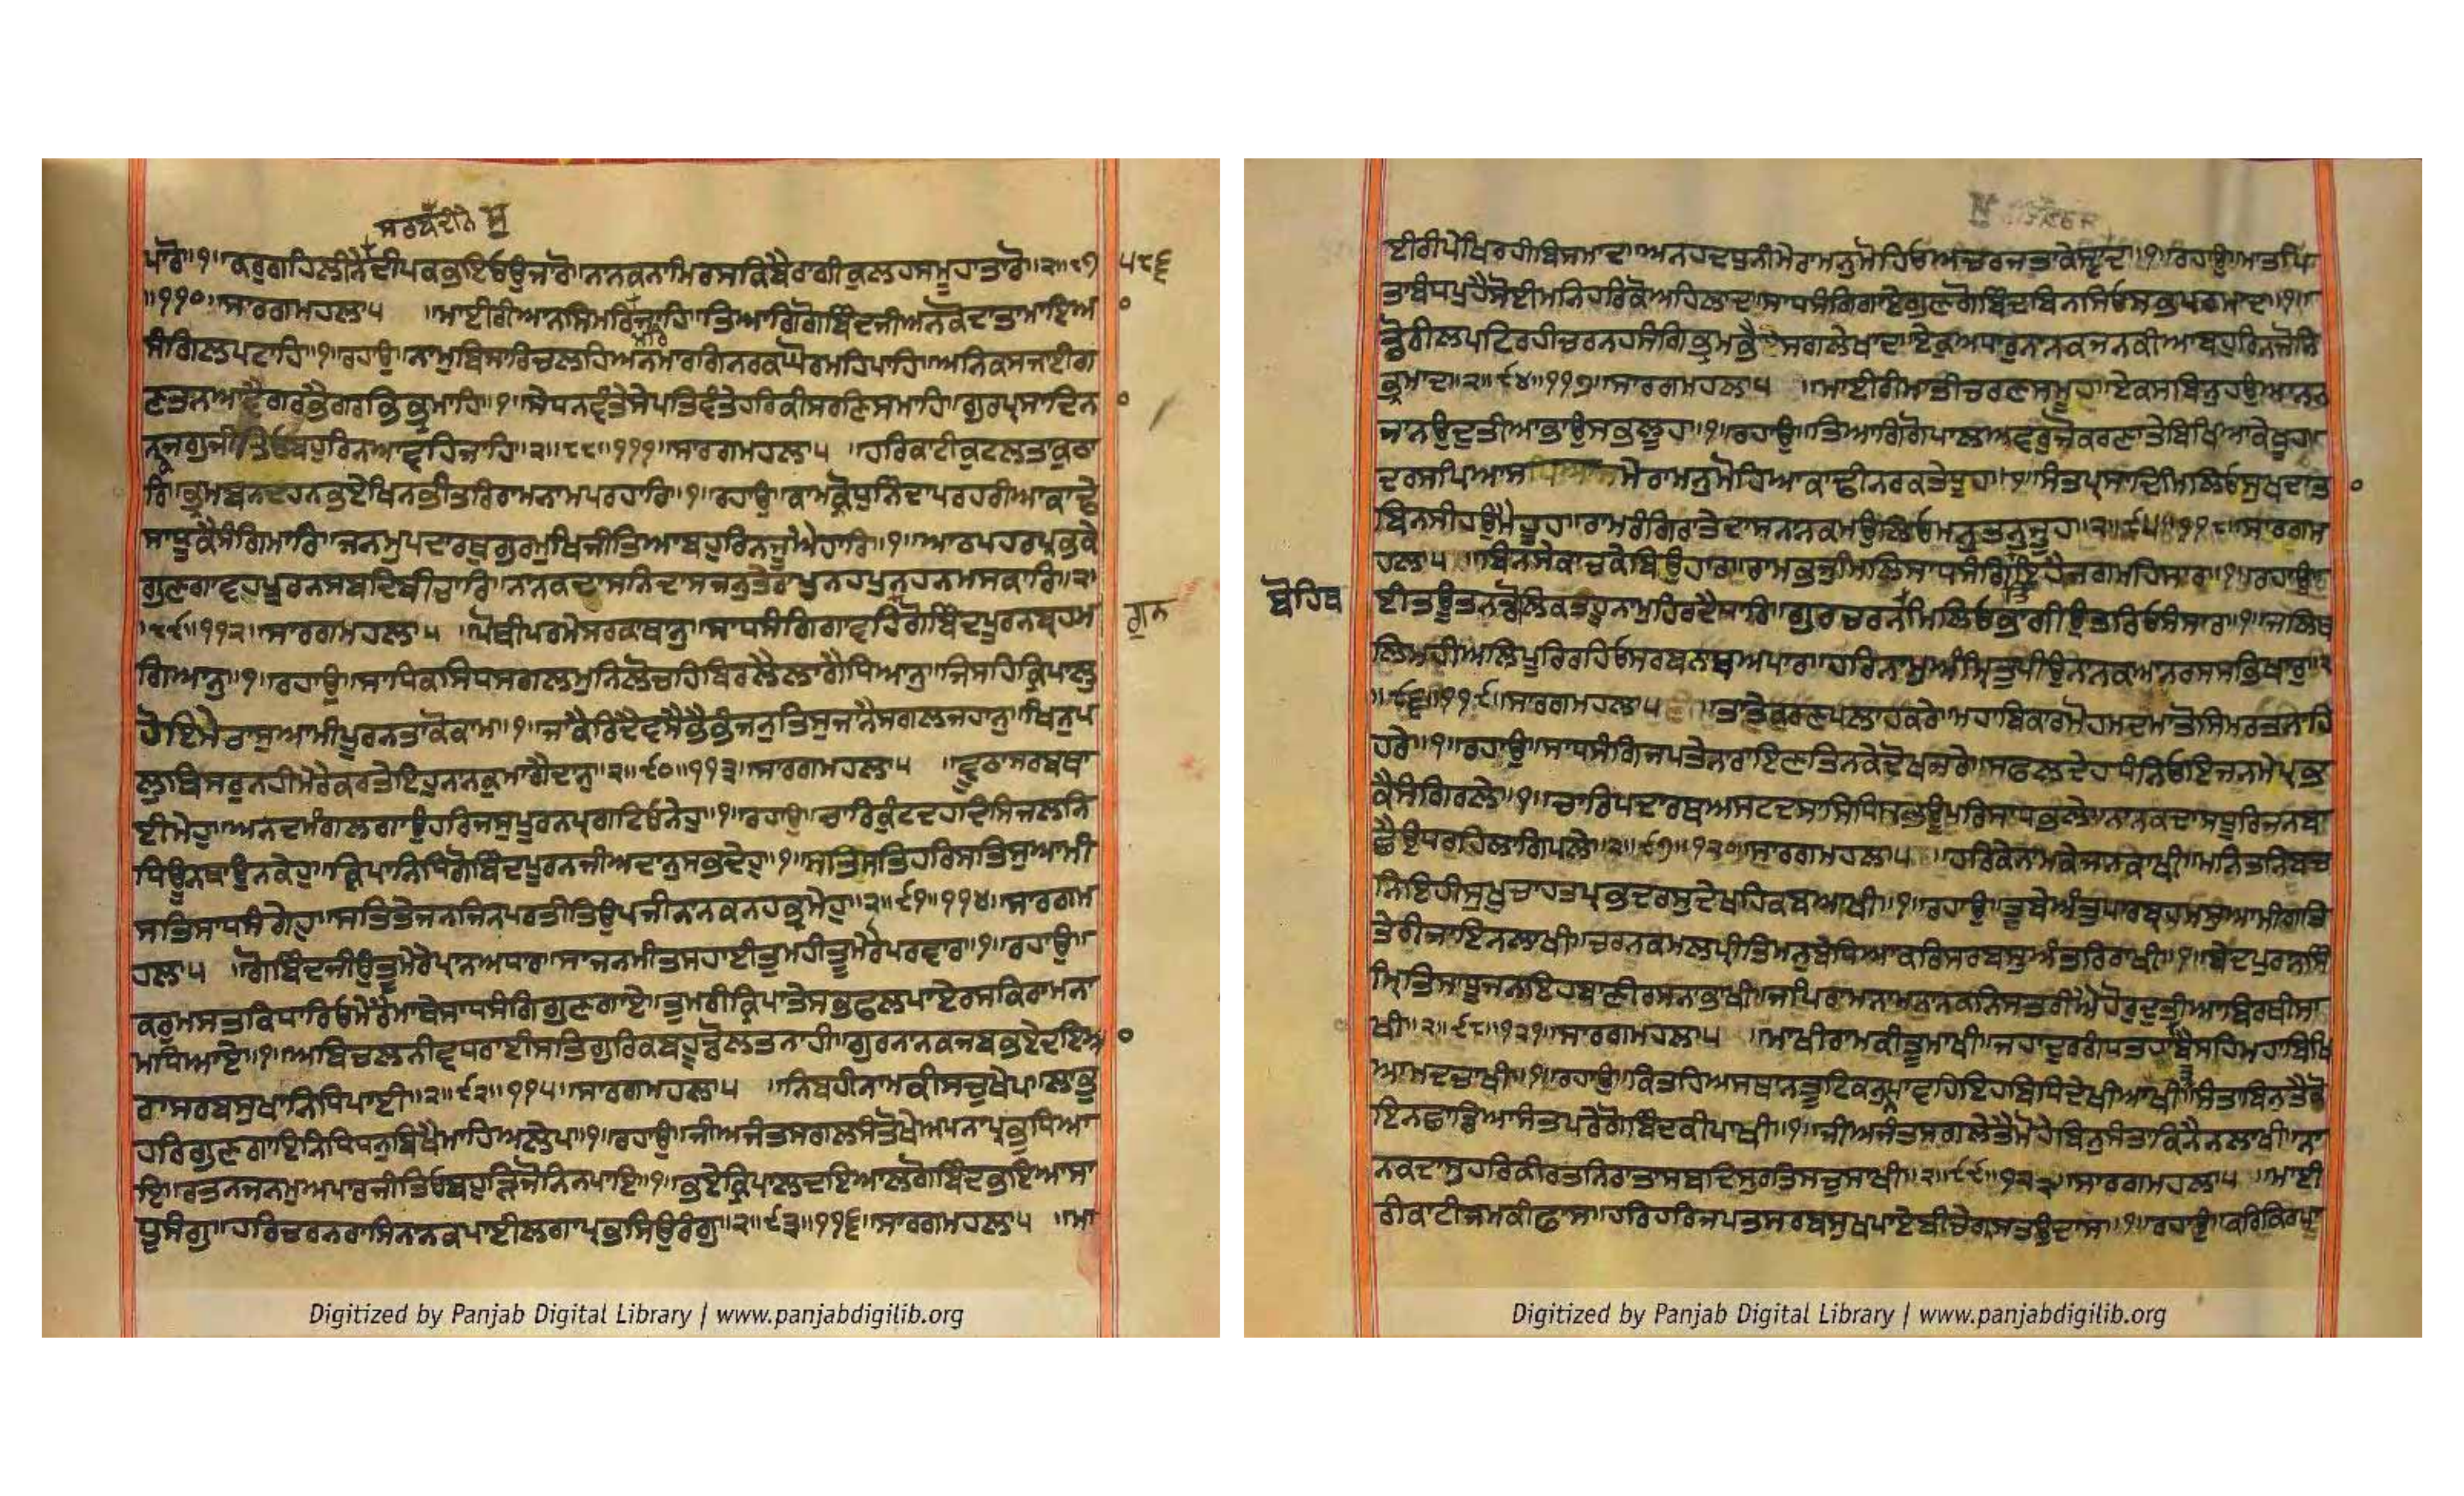 ਸਰਬ ਦੀਨੋ ਸੁ
ਪਾਰੋ॥੧॥ਕਰੁਗਹਿਲੀਨੇਦੀਪਕਭਇਓਉਜਾਰੋ॥ਨਾਨਕਨਾਮਿਰਸਕਿਬੈਰਾਗੀਕੁਲਹਸਮੂਹਾਤਾਰੋ॥੨॥੮੭ ੫੮੬
॥੧੧੦॥ਸਾਰਗਮਹਲਾ੫ ॥ਮਾਈਰੀਆਨਸਿਮਰਿਜਾਹਿ॥ਤਿਆਗਿਗੋਬਿੰਦਜੀਅਨਕੋਦਾਤਾਮਾਇਆ
ਸੰਗਿਲਪਟਾਹਿ॥੧॥ਰਹਾਉ॥ਨਾਮੁਬਿਸਾਰਿਚਲਹਿਅਨਮਾਰਗਿਨਰਕਘੋਰਮਹਿਪਾਹਿ॥ਅਨਿਕਸਜਾਈਗ
ਣਤਨਆਵੈਗਰਭੈਗਰਭਿਭ੍ਰਮਾਹਿ॥੧॥ਸੇਧਨਵੰਤੇਸੇਪਤਿਵੰਤੇਹਰਿਕੀਸਰਣਿਸਮਾਹਿ॥ਗੁਰਪ੍ਰਸਾਦਿਨ
ਨਕਜਗੁਜੀਤਿਓਬਹੁਰਿਨਆਵਹਿਜਾਹਿ॥੨॥੮੮॥੧੧੧॥ਸਾਰਗਮਹਲਾ੫ ॥ਹਰਿਕਾਟੀਕੁਟਲਤਾਕੁਠਾ
ਰਿ॥ਭ੍ਰਮਬਨਦਹਨਭਏਖਿਨਭੀਤਰਿਰਾਮਨਾਮਪਰਹਾਰਿ॥੧॥ਰਹਾਉ॥ਕਾਮਕ੍ਰੋਧਨਿੰਦਾਪਰਹਰੀਆਕਾਢੇ
ਸਾਧੂਕੈਸੰਗਿਮਾਰਿ॥ਜਨਮੁਪਦਾਰਥੁਗੁਰਮੁਖਿਜੀਤਿਆਬਹੁਰਿਨਜੂਐਹਾਰਿ॥੧॥ਆਠਪਹਰਪ੍ਰਭਕੇ
ਗੁਣਗਾਵਹਪੂਰਨਸਬਦਿਬੀਚਾਰਿ॥ਨਾਨਕਦਾਸਨਿਦਾਸਜਨੁਤੇਰਾਪੁਨਹਪੁਨਹਨਮਸਕਾਰਿ॥੨॥
॥੮੯॥੧੧੨॥ਸਾਰਗਮਹਲਾ੫ ॥ਪੋਥੀਪਰਮੇਸਰਕਾਥਾਨੁ॥ਸਾਧਸੰਗਿਗਾਵਹਿਗੋਬਿੰਦਪੂਰਨਬ੍ਰਹਮ ਗੁਨ
ਗਿਆਨੁ॥੧॥ਰਹਾਉ॥ਸਾਧਿਕਸਿਧਸਗਲਮੁਨਿਲੋਚਹਿਬਿਰਲੈਲਾਗੈਧਿਆਨੁ॥ਜਿਸਹਿਕ੍ਰਿਪਾਲੁ
ਹੋਇਮੇਰਾਸੁਆਮੀਪੂਰਨਤਾਕੋਕਾਮ॥੧॥ਜਾਕੈਰਿਦੈਵਸੈਭੈਭੰਜਨੁਤਿਸੁਜਾਨੈਸਗਲਜਹਾਨੁ॥ਖਿਨੁਪ
ਲੁਬਿਸਰੁਨਹੀਮੇਰੇਕਰਤੇਇਹੁਨਾਨਕੁਮਾਗੈਦਾਨੁ॥੨॥੯੦॥੧੧੩॥ਸਾਰਗਮਹਲਾ੫ ॥ਵੂਠਾਸਰਬਥਾ
ਈਮੇਹੁ॥ਅਨਦਮੰਗਲਗਾਉਹਰਿਜਸੁਪੂਰਨਪ੍ਰਗਟਿਓਨੇਹੁ॥੧॥ਰਹਾਉ॥ਚਾਰਿਕੁੰਟਦਹਦਿਸਿਜਲਨਿ
ਧਿਊਨਥਾਉਨਕੇਹੁ॥ਕ੍ਰਿਪਾਨਿਧਿਗੋਬਿੰਦਪੂਰਨਜੀਅਦਾਨੁਸਭਦੇਹੁ॥੧॥ਸਤਿਸਤਿਹਰਿਸਤਿਸੁਆਮੀ
ਸਤਿਸਾਧਸੰਗੇਹੁ॥ਸਤਿਤੇਜਨਜਿਨਪਰਤੀਤਿਉਪਜੀਨਾਨਕਨਹਭ੍ਰਮੇਹੁ॥੨॥੯੧॥੧੧੪॥ਸਾਰਗਮ
ਹਲਾ੫ ॥ਗੋਬਿੰਦਜੀਉਤੂਮੇਰੇਪ੍ਰਾਨਅਧਾਰ॥ਸਾਜਨਮੀਤਸਹਾਈਤੁਮਹੀਤੂਮੇਰੋਪਰਵਾਰ॥੧॥ਰਹਾਉ॥
ਕਰੁਮਸਤਕਿਧਾਰਿਓਮੇਰੈਮਾਥੈਸਾਧਸੰਗਿਗੁਣਗਾਏ॥ਤੁਮਰੀਕ੍ਰਿਪਾਤੇਸਭਫਲਪਾਏਰਸਕਿਰਾਮਨਾ
ਮਧਿਆਏ॥੧॥ਅਬਿਚਲਨੀਵਧਰਾਈਸਤਿਗੁਰਿਕਬਹੂਡੋਲਤਨਾਹੀ॥ਗੁਰਨਾਨਕਜਬਭਏਦਇਆ
ਰਾਸਰਬਸੁਖਾਨਿਧਿਪਾਈ॥੨॥੯੨॥੧੧੫॥ਸਾਰਗਮਹਲਾ੫ ॥ਨਿਬਹੀਨਾਮਕੀਸਚੁਖੇਪ॥ਲਾਭੁ
ਹਰਿਗੁਣਗਾਇਨਿਧਿਧਨੁਬਿਖੈਮਾਹਿਅਲੇਪ॥੧॥ਰਹਾਉ॥ਜੀਅਜੰਤਸਗਲਸੰਤੋਖੇਅਪਨਾਪ੍ਰਭੁਧਿਆ
ਇ॥ਰਤਨਜਨਮੁਅਪਾਰਜੀਤਿਓਬਹੁੜਿਜੋਨਿਨਪਾਇ॥੧॥ਭਏਕ੍ਰਿਪਾਲਦਇਆਲਗੋਬਿੰਦਭਇਆਸਾ
ਧੂਸੰਗੁ॥ਹਰਿਚਰਨਰਾਸਿਨਾਨਕਪਾਈਲਗਾਪ੍ਰਭਸਿਉਰੰਗੁ॥੨॥੯੩॥੧੧੬॥ਸਾਰਗਮਹਲਾ੫ ॥ਮਾ
Digitized by Panjab Digital Library | www.panjabdigilib.org
ਈਰੀਪੇਖਿਰਹੀਬਿਸਮਾਦ॥ਅਨਹਦਧੁਨੀਮੇਰਾਮਨੁਮੋਹਿਓਅਚਰਜਤਾਕੇਸ੍ਵਾਦ॥੧॥ਰਹਾਉ॥ਮਾਤਪਿ
ਤਾਬੰਧਪਹੈਸੋਈਮਨਿਹਰਿਕੋਅਹਿਲਾਦ॥ਸਾਧਸੰਗਿਗਾਏਗੁਣਗੋਬਿੰਦਬਿਨਸਿਓਸਭੁਪਰਮਾਦ॥੧॥
ਡੋਰੀਲਪਟਿਰਹੀਚਰਨਹਸੰਗਿਭ੍ਰਮਭੈਸਗਲੇਖਾਦ॥ਏਕੁਅਧਾਰੁਨਾਨਕਜਨਕੀਆਬਹੁਰਿਨਜੋਨਿ
ਭ੍ਰਮਾਦ॥੨॥੯੪॥੧੧੭॥ਸਾਰਗਮਹਲਾ੫ ॥ਮਾਈਰੀਮਾਤੀਚਰਣਸਮੂਹ॥ਏਕਸਬਿਨੁਹਉਆਨਨ
ਜਾਨਉਦੁਤੀਆਭਾਉਸਭਲੂਹ॥੧॥ਰਹਾਉ॥ਤਿਆਗਿਗੋੁਪਾਲਅਵਰਜੋਕਰਣਾਤੇਬਿਖਿਆਕੇਖੂਹ॥
ਦਰਸਪਿਆਸਮੇਰਾਮਨੁਮੋਹਿਆਕਾਢੀਨਰਕਤੇਧੂਹ॥੧॥ਸੰਤਪ੍ਰਸਾਦਿਮਿਲਿਓਸੁਖਦਾਤਾ
ਬਿਨਸੀਹਉਮੈਹੂਹ॥ਰਾਮਰੰਗਿਰਾਤੇਦਾਸਨਾਨਕਮਉਲਿਓਮਨੁਤਨੁਜੂਹ॥੨॥੯੫॥੧੧੮॥ਸਾਰਗਮ
ਹਲਾ੫ ॥ਬਿਨਸੇਕਾਚਕੇਬਿਉਹਾਰ॥ਰਾਮਭਜੁਮਿਲਿਸਾਧਸੰਗਿਇਹੈਜਗਮਹਿਸਾਰ॥੧॥ਰਹਾਉ॥
ਬੋਹਿਥ ਈਤਊਤਨਡੋਲਿਕਤਹੂਨਾਮੁਹਿਰਦੈਧਾਰਿ॥ਗੁਰਚਰਨਮਿਲਿਓਭਾਗੀਉਤਰਿਓਸੰਸਾਰ॥੧॥ਜਲਿਥ
ਲਿਮਹੀਅਲਿਪੂਰਿਰਹਿਓਸਰਬਨਾਥਅਪਾਰ॥ਹਰਿਨਾਮੁਅੰਮ੍ਰਿਤੁਪੀਉਨਾਨਕਆਨਰਸਸਭਿਖਾਰ॥੨
॥੯੬॥੧੧੯॥ਸਾਰਗਮਹਲਾ੫ ॥ਤਾਤੇਕਰਣਪਲਾਹਕਰੇ॥ਮਹਾਬਿਕਾਰਮੋਹਮਦਮਾਤੌਸਿਮਰਤਨਾਹਿ
ਹਰੇ॥੧॥ਰਹਾਉ॥ਸਾਧਸੰਗਿਜਪਤੇਨਾਰਾਇਣਤਿਨਕੇਦੋਖਜਰੇ॥ਸਫਲਦੇਹਧੰਨਿਓਇਜਨਮੇਪ੍ਰਭ
ਕੈਸੰਗਿਰਲੇ॥੧॥ਚਾਰਿਪਦਾਰਥਅਸਟਦਸਾਸਿਧਿਸਭਊਪਰਿਸਾਧਭਲੇ॥ਨਾਨਕਦਾਸਧੂਰਿਜਨਬਾ
ਛੈਉਧਰਹਿਲਾਗਿਪਲੇ॥੨॥੯੭॥੧੨੦॥ਸਾਰਗਮਹਲਾ੫ ॥ਹਰਿਕੇਨਾਮਕੇਜਨਕਾਂਖੀ॥ਮਨਿਤਨਿਬਚ
ਨਿਇਹੀਸੁਖੁਚਾਹਤਪ੍ਰਭਦਰਸੁਦੇਖਹਿਕਬਆਖੀ॥੧॥ਰਹਾਉ॥ਤੂਬੇਅੰਤੁਪਾਰਬ੍ਰਹਮਸੁਆਮੀਗਤਿ
ਤੇਰੀਜਾਇਨਲਾਖੀ॥ਚਰਨਕਮਲਪ੍ਰੀਤਿਮਨੁਬੇਧਿਆਕਰਿਸਰਬਸੁਅੰਤਰਿਰਾਖੀ॥੧॥ਬੇਦਪੁਰਾਨਸਿੰ
ਮ੍ਰਿਤਿਸਾਧੂਜਨਇਹਬਾਣੀਰਸਨਾਭਾਖੀ॥ਜਪਿਰਾਮਨਾਮਨਾਨਕਨਿਸਤਰੀਐਹੋਰੁਦੁਤੀਆਬਿਰਥੀਸਾ
ਖੀ॥੨॥੯੮॥੧੨੧॥ਸਾਰਗਮਹਲਾ੫ ॥ਮਾਖੀਰਾਮਕੀਤੂਮਾਖੀ॥ਜਹਾਦੁਰਗੰਧਤਹਾਬੈਸਹਿਮਹਾਬਿਖਿ
ਆਮਦਚਾਖੀ॥੧॥ਰਹਾਉ॥ਕਿਤਹਿਅਸਥਾਨਤੂਟਿਕਨੁਨਪਾਵਹਿਇਹਬਿਧਿਦੇਖੀਆਖੀ॥ਸੰਤਾਬਿਨੁਤੈਕੋ
ਇਨਛਾਡਿਆਸੰਤਪਰੇਗੋਬਿੰਦਕੀਪਾਖੀ॥੧॥ਜੀਅਜੰਤਸਗਲੇਤੈਮੋਹੇਬਿਨੁਸੰਤਾਕਿਨੈਨਲਾਖੀ॥ਨਾ
ਨਕਦਾਸੁਹਰਿਕੀਰਤਨਿਰਾਤਾਸਬਦਿਸੁਰਤਿਸਚੁਸਾਖੀ॥੨॥੯੯॥੧੨੨॥ਸਾਰਗਮਹਲਾ੫ ॥ਮਾਈ
ਰੀਕਾਟੀਜਮਕੀਫਾਸ॥ਹਰਿਹਰਿਜਪਤਸਰਬਸੁਖਪਾਏਬੀਚੇਗ੍ਰਸਤਉਦਾਸ॥੧॥ਰਹਾਉ॥ਕਰਿਕਿਰਪਾ
Digitized by Panjab Digital Library | www.panjabdigilib.org